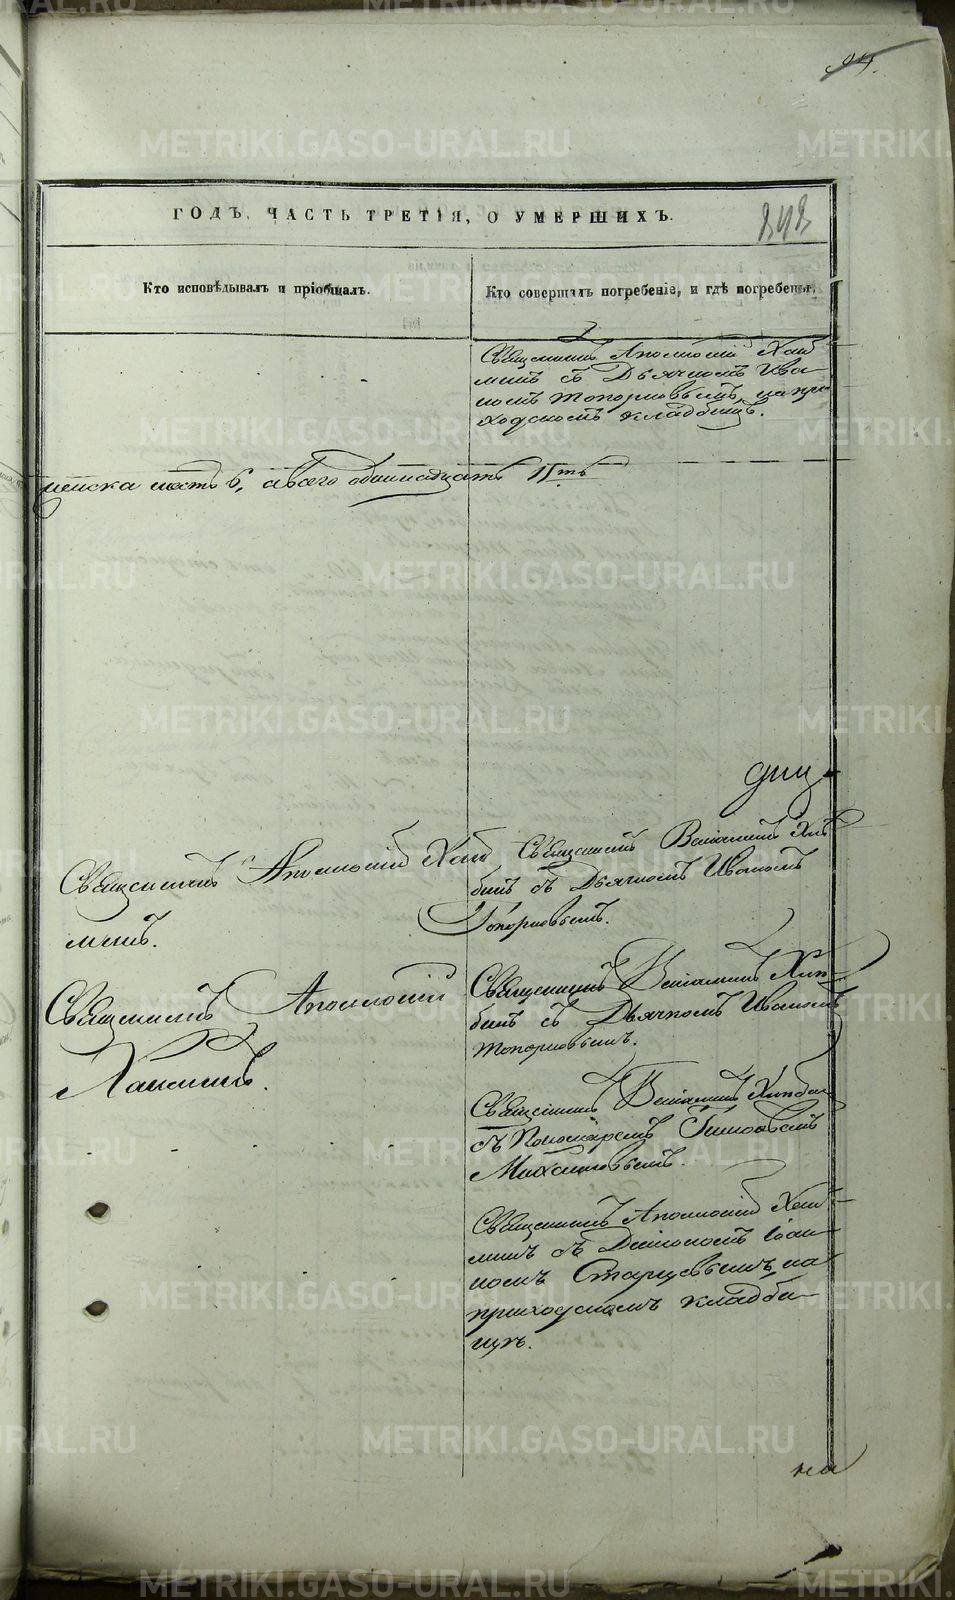 METRIKI.GASO-URAL.RU
94.
ГОДЪ, ЧАСТЬ ТРЕТІЯ, О УМЕРШИХЪ.
Кто исповѣдывалъ и пріобщалъ.
Кто совершалъ погребеніе, и гдѣ погребены.
Священникъ Аполлоній
съ Дьячкомъ Ива-
номъ Топорковымъ, на при
ходскомъ кладбищѣ.
женска шесть 6, а всего одиннадцать 11ть
Священникъ Аполлоній
Священникъ Веніаминъ Хлѣ
бинъ съ Дьячкомъ Иваномъ
Топорковымъ.
Священникъ Аполлоній
Священникъ Веніаминъ Хлѣ-
бинъ съ Дьячкомъ Иваномъ
Топорковымъ.
Священникъ Веніаминъ Хлѣбин
съ Пономаремъ
Священникъ Аполлоній
съ Діакономъ Іоан
номъ Старцевымъ, на
приходскомъ кладби-
щѣ.
на